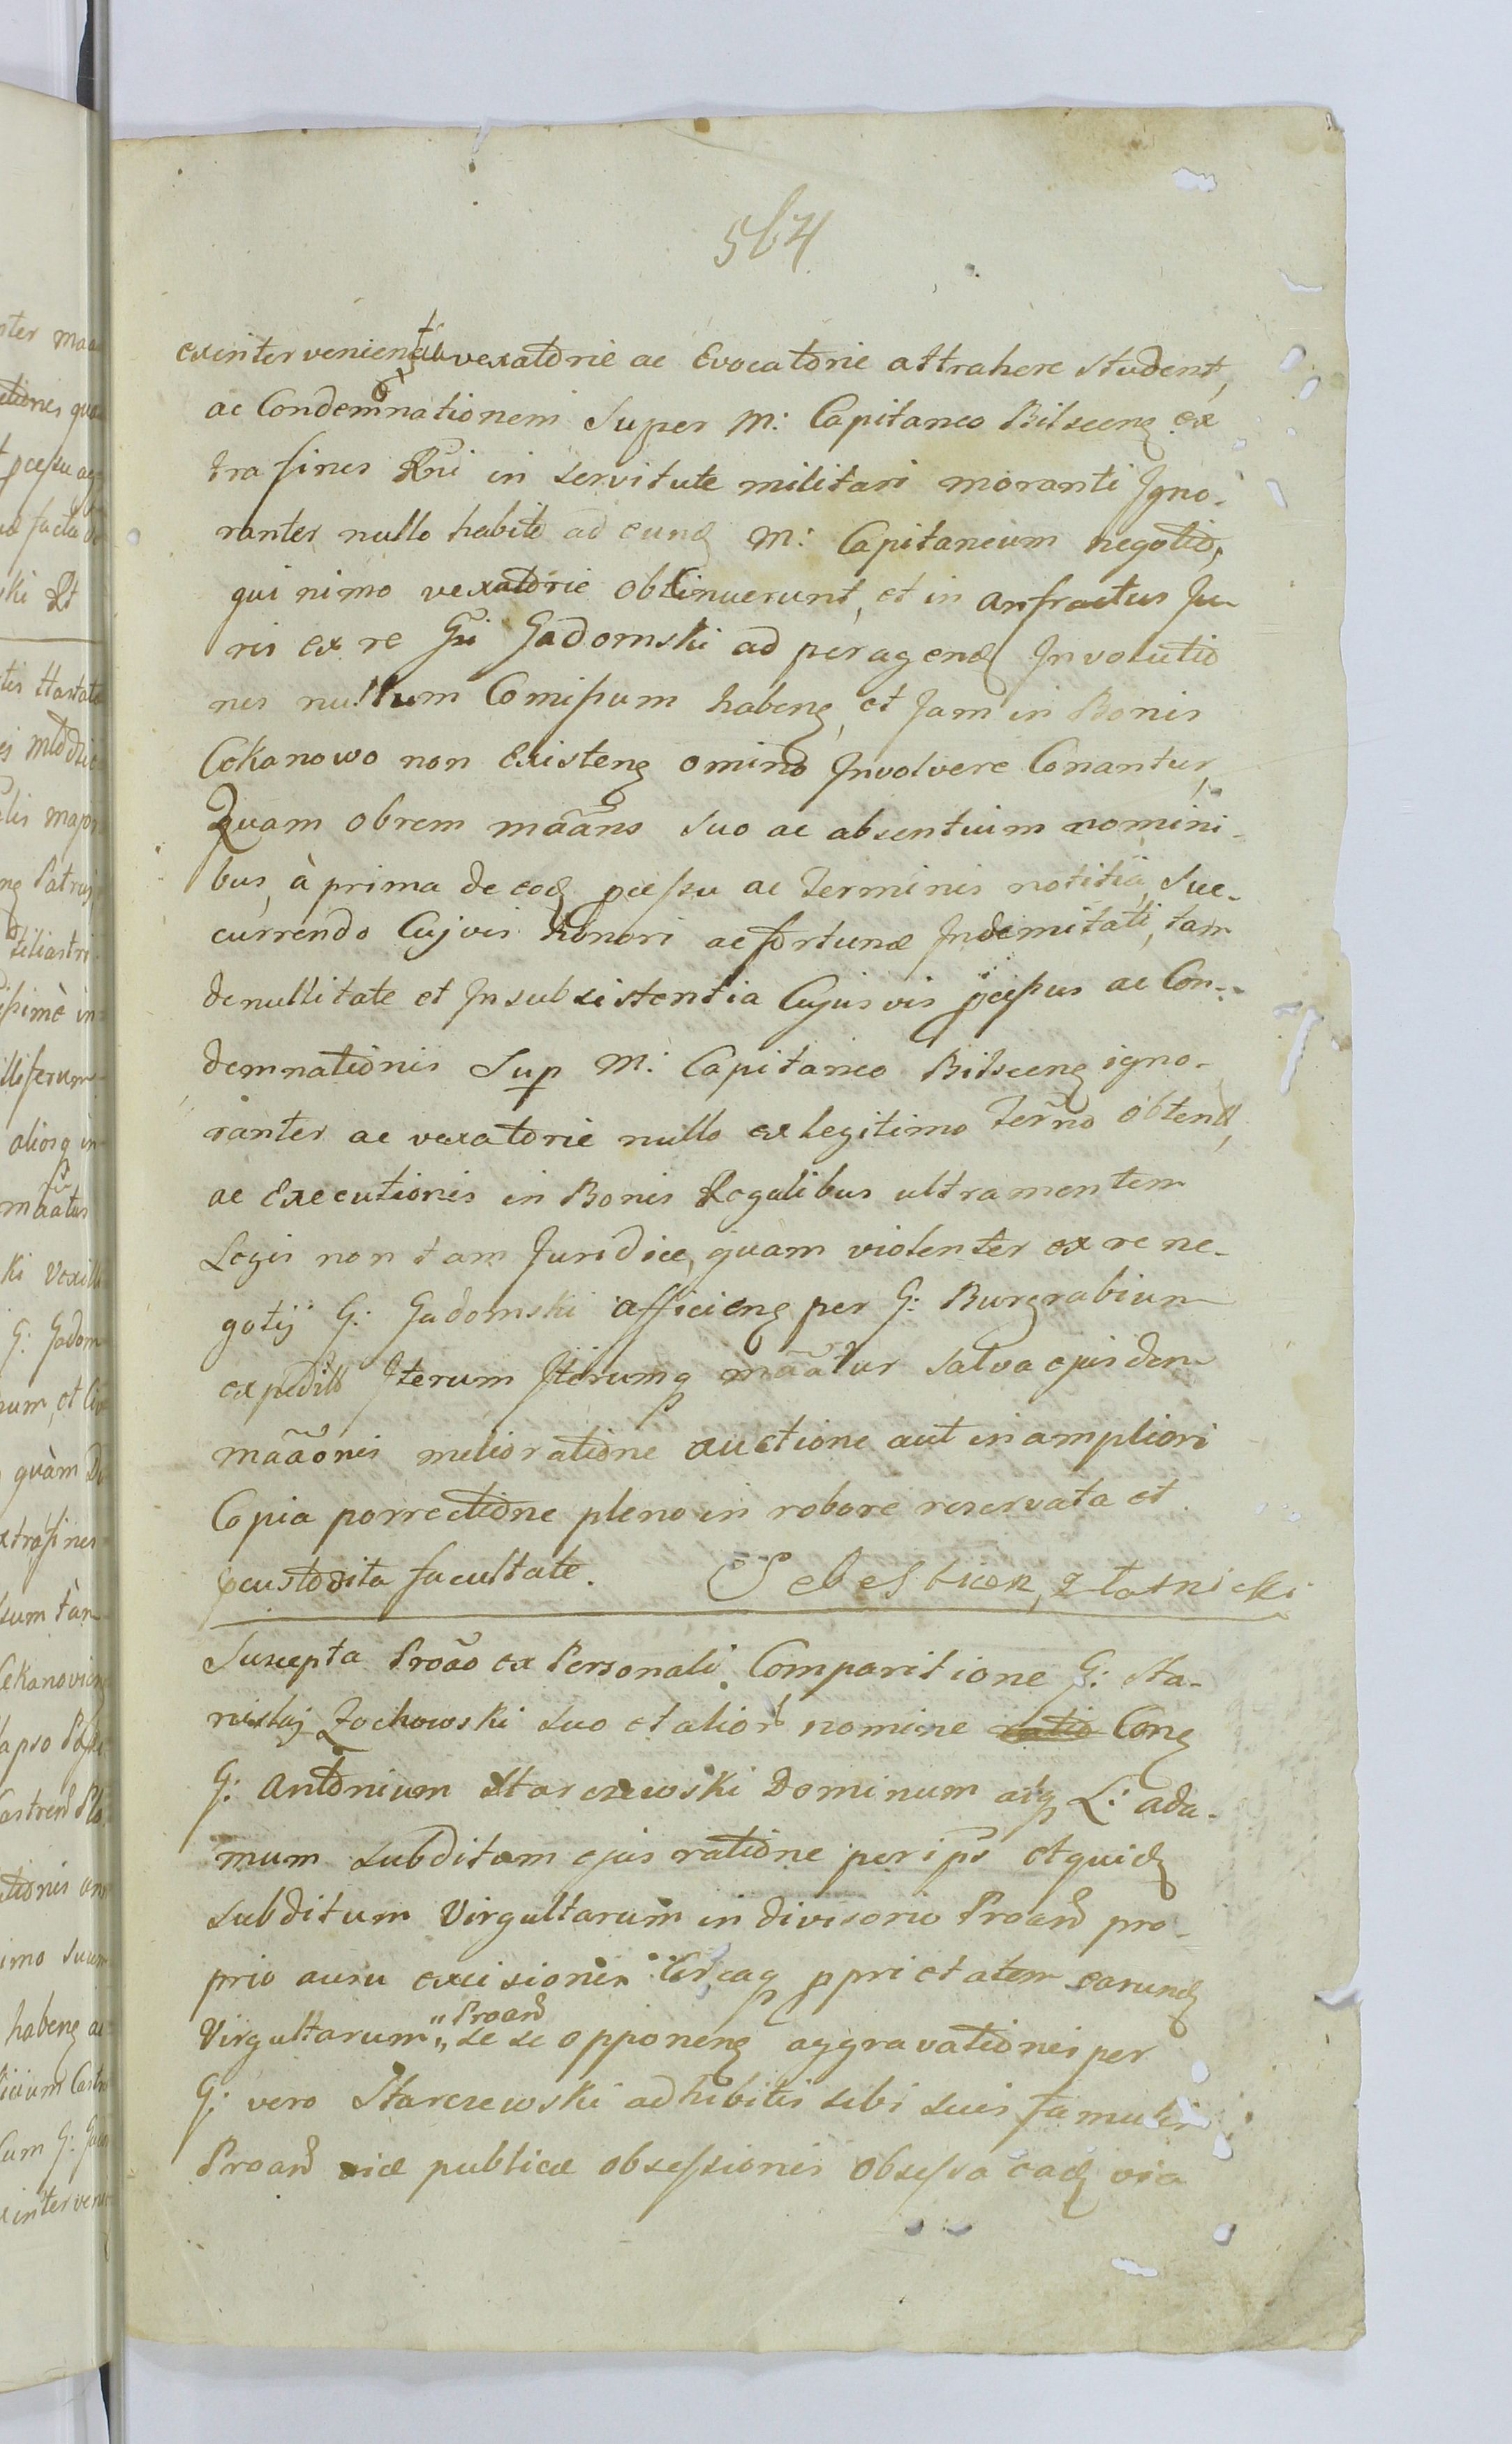 564
exinter venient vexatorie ac Evocatorie attrahere student,
ac Condemnationem Super M: Capitaneo Bilscen ex
tra fines Rni in servitute militari moranti Igno-
ranter nullo habito ad eund M: Capitaneum negotio,
qui nimo vexatorie obtinuerunt, et in anfractus Ju
ris ex re Gsi Gadomski ad peragend Involutio
nes nullum Comissum haben et Jam in Bonis
Cekanowo non Existen omino Involvere Conantur,
Quam obrem mãans suo ac absentium nomini-
bus, à prima de eod pcessu ac Terminis notitia, Suc-
currendo Cujvis honori ac fortunæ Indemitati, tam
de nullitate et Insubsistentia Cujus vis pcessus ac Con-
demnationis Sup M: Capitaneo Bilscen igno-
ranter ac vexatorie nullo ex legitimo Termo obtent,
ac Executionis in Bonis Regalibus ultra mentem
Legis non tam Juridice, quam violenter ex re ne-
gotij G: Gadomski afficien per G: Burgrabium
expedit Iterum Iterumq mãatur salva ejusdem
mãaonis melioratione auctione aut in ampliori
Copia porrectione pleno in robore reservata et
pcustodita facultate. Sebestian Złotnicki
Suscepta Proão ex Personali Comparitione G: Sta-
nislaj Żochowski suo et alior nomine Con
G: Antonium Starczewski Dominum atq L: Ada-
mum subditum ejus ratione per ips et quid
subditum Virgultarum in divisorio Proand pro-
prio ausu excisionis Circaq pprietatem earund
Virgultarum Proand se se opponen aggravationis per
G: vero Starczewski adhibitis sibi suis famulis
Proand viæ publicæ obsessionis obsessa ead via